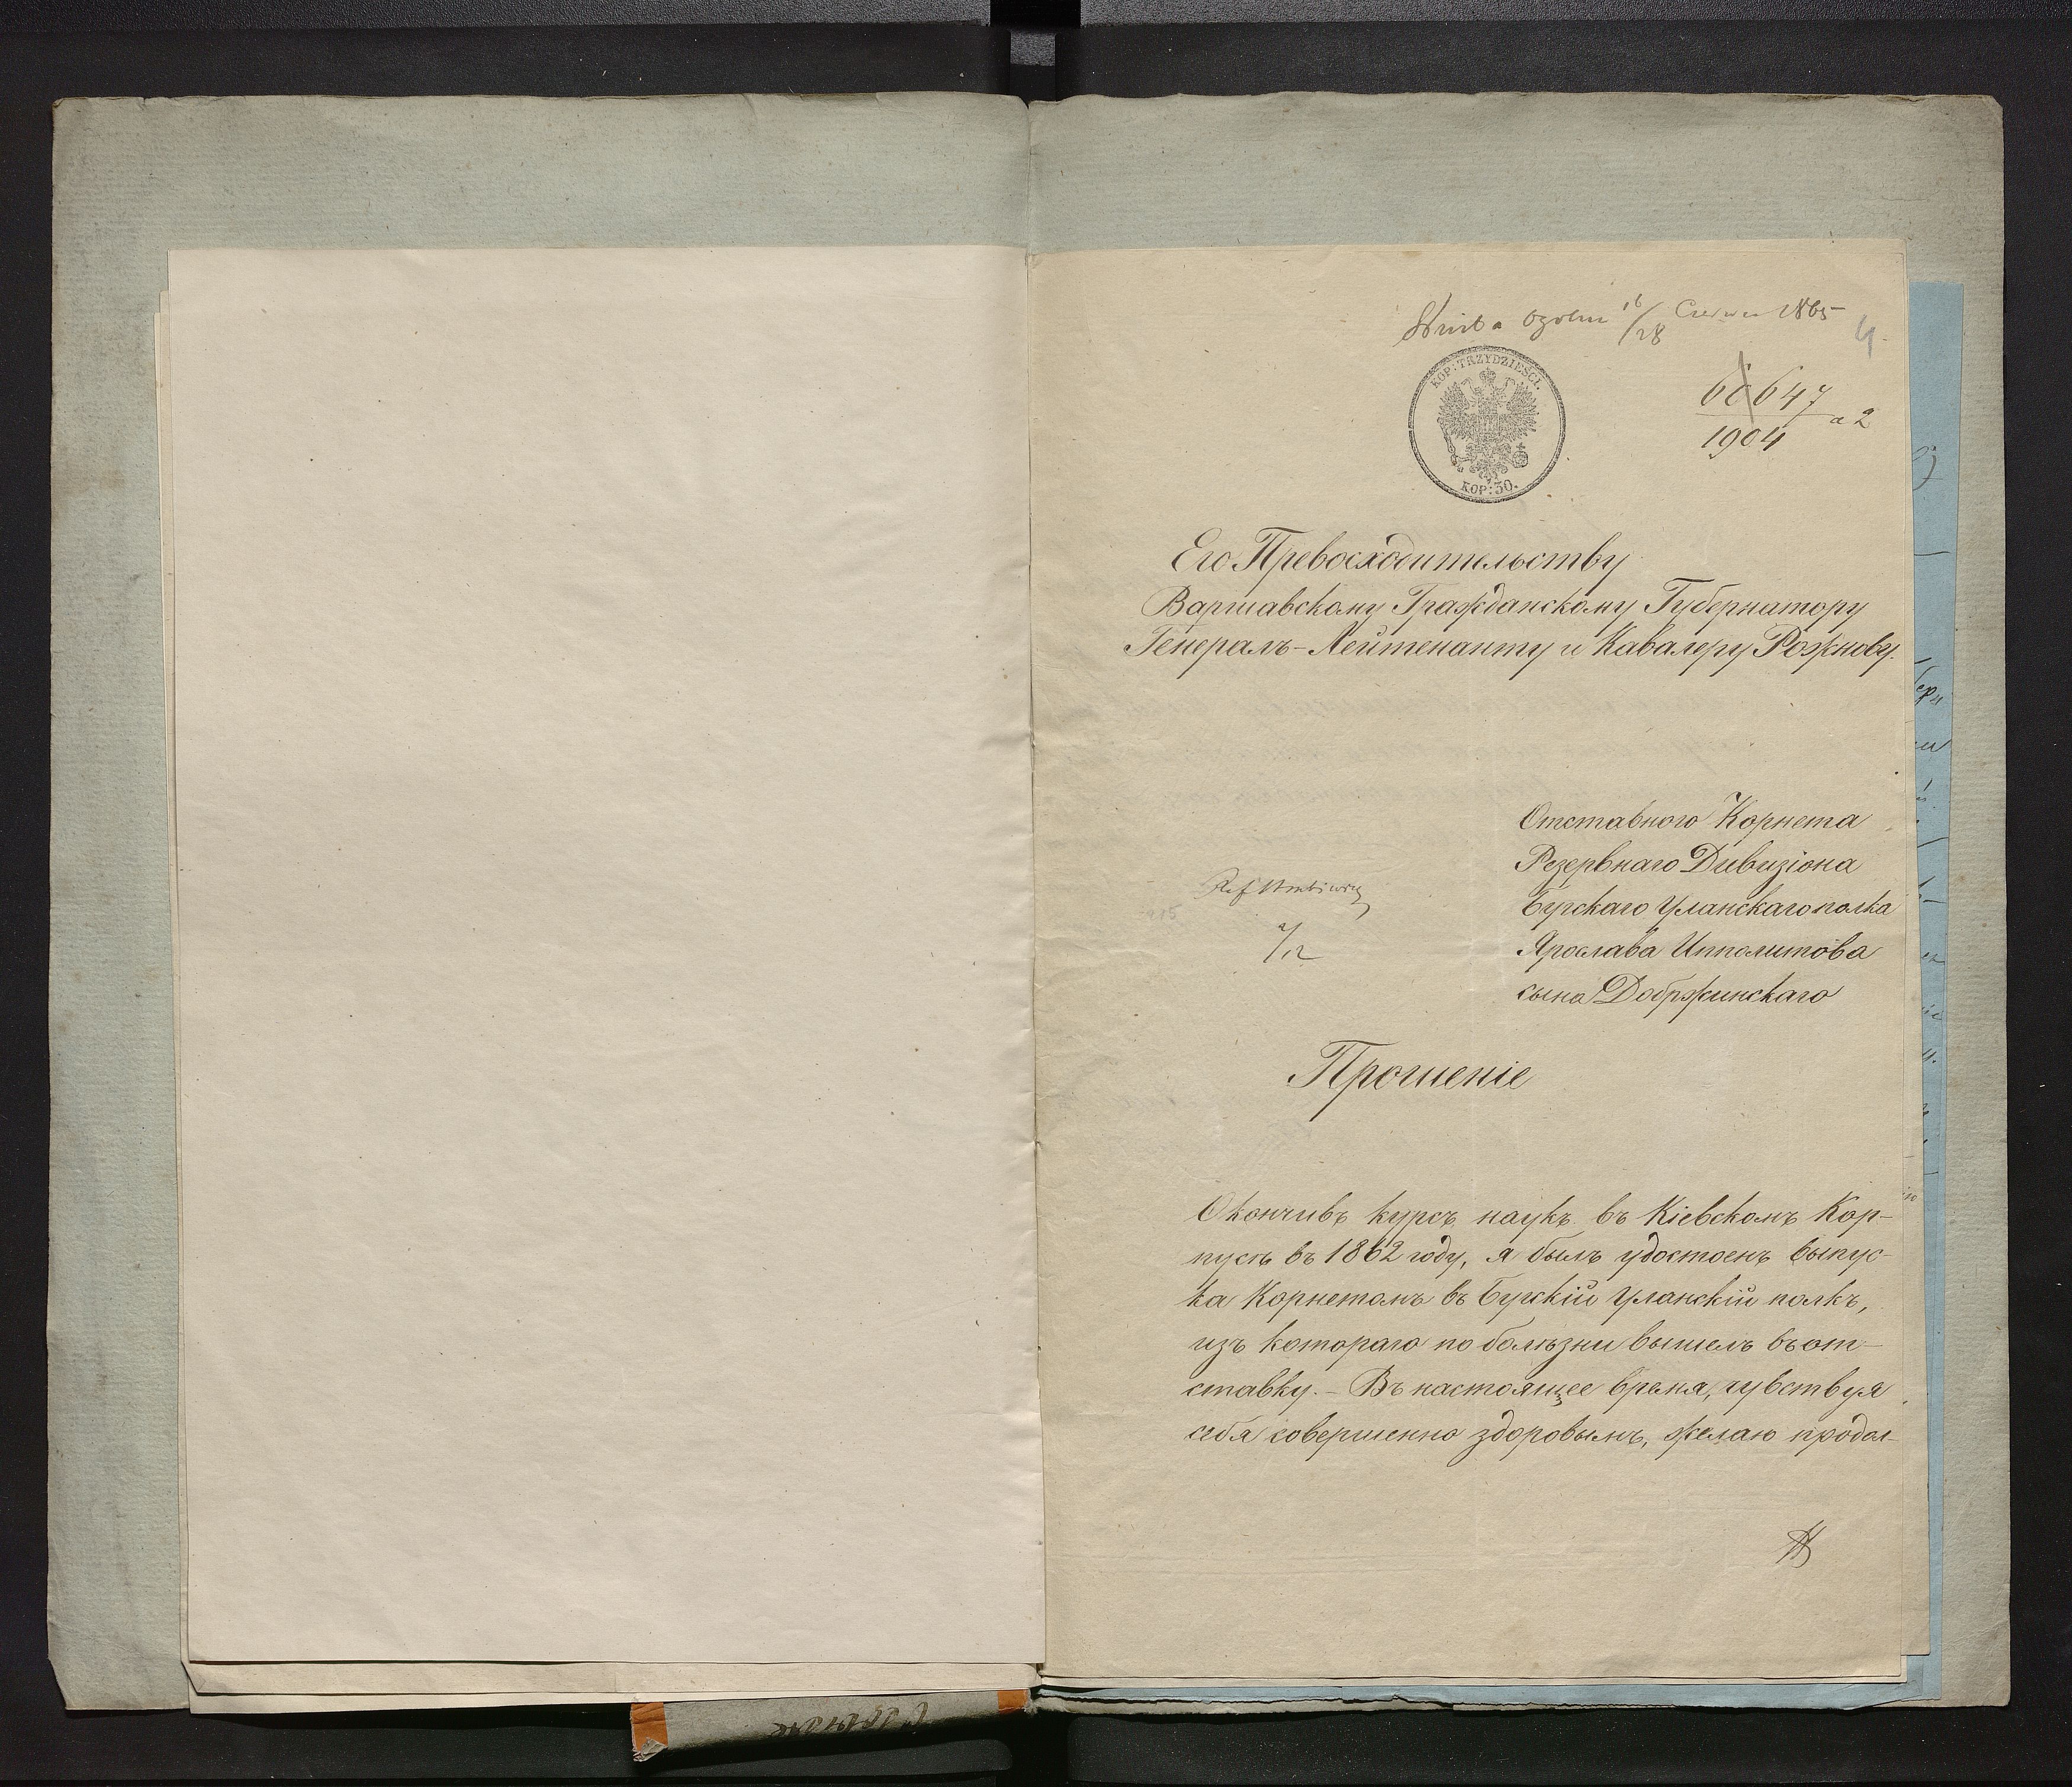 16/28 Czerwca 1865
4
КОР: TRZYDZIEŚCI.
КОР: 30.
60647
1904 a 2
Его Превосходительству
Варшавскому Гражданскому Губернатору
Генералъ-Лейтенанту и Кавалеру Рожнову.
Отставного Корнета
Резервнаго Дивизіона
Бугскаго Уланскаго полка
Ярослава Ипполитова
сына Добржинскаго
Ref
Прошеніе
Окончивъ курсъ наукъ въ Кіевскомъ Кор-
пусѣ въ 1862 году, я былъ удостоенъ выпус-
ка Корнетомъ въ Бугскій Уланскій полкъ,
изъ котораго по болѣзни вышелъ въ от-
ставку. - Въ настоящее время, чувствуя
себя совершенно здоровымъ, желаю продол-